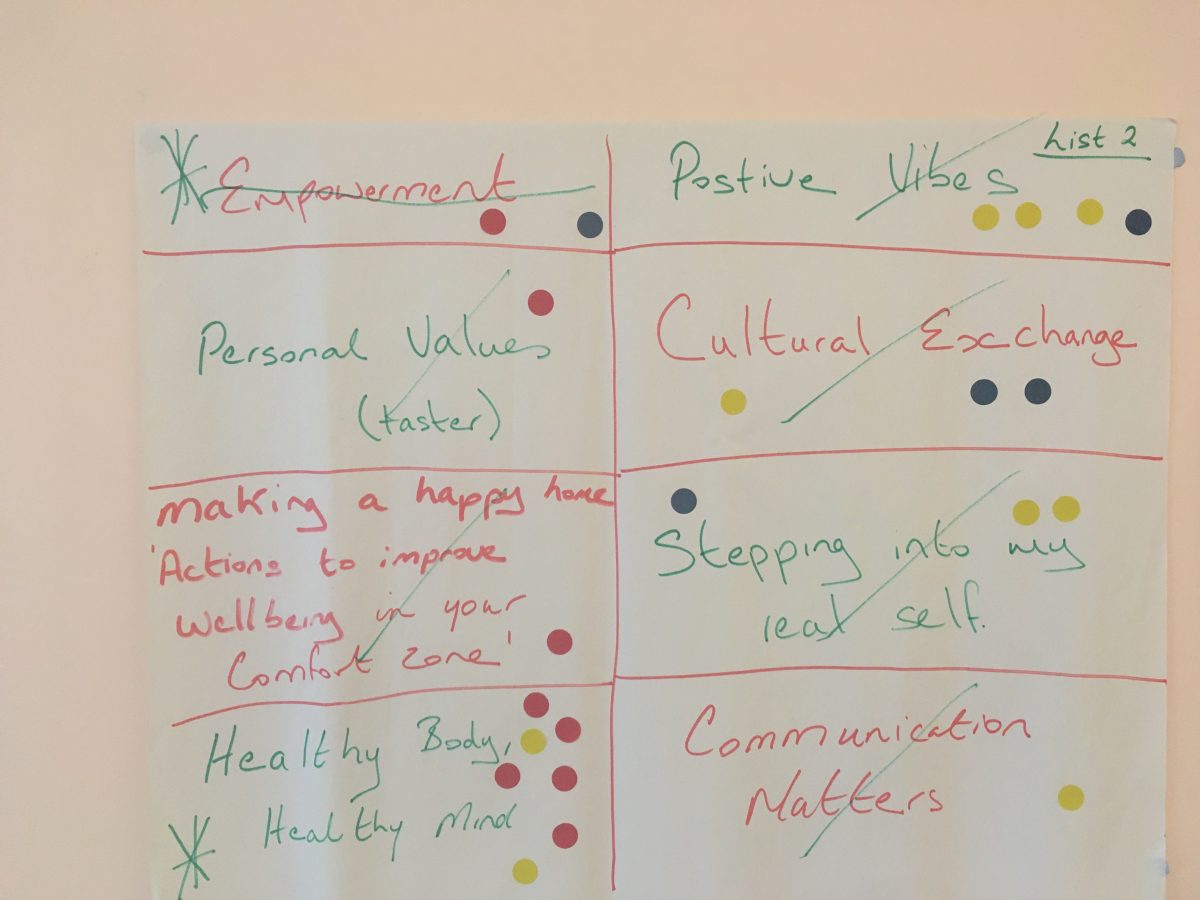 Empowerment
Postive Vibes
List 2
Personal Values
(taster)
Cultural Exchange
making a happy home
'Actions to improve
wellbeing in your
Comfort zone'
Stepping into my
real self.
Healthy Body,
Healthy Mind
Communication
Matters